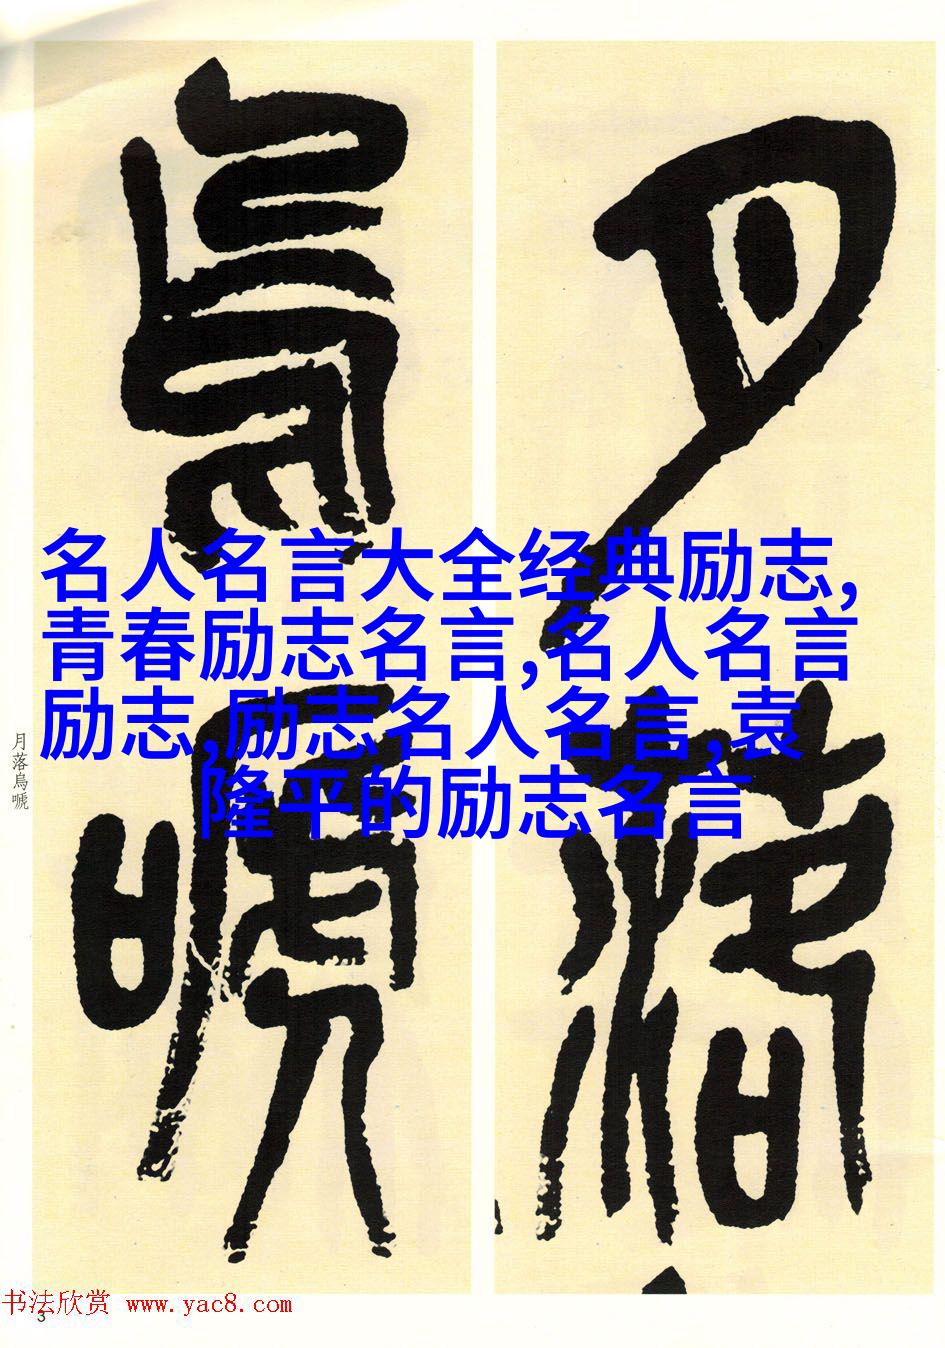 月落
烏嗁
名人名言大全经典励志,
青春励志名言,名人名言
励志,励志名人名言,袁
隆平的励志名言
月落烏嗁
书法欣赏 www.yac8.com
3